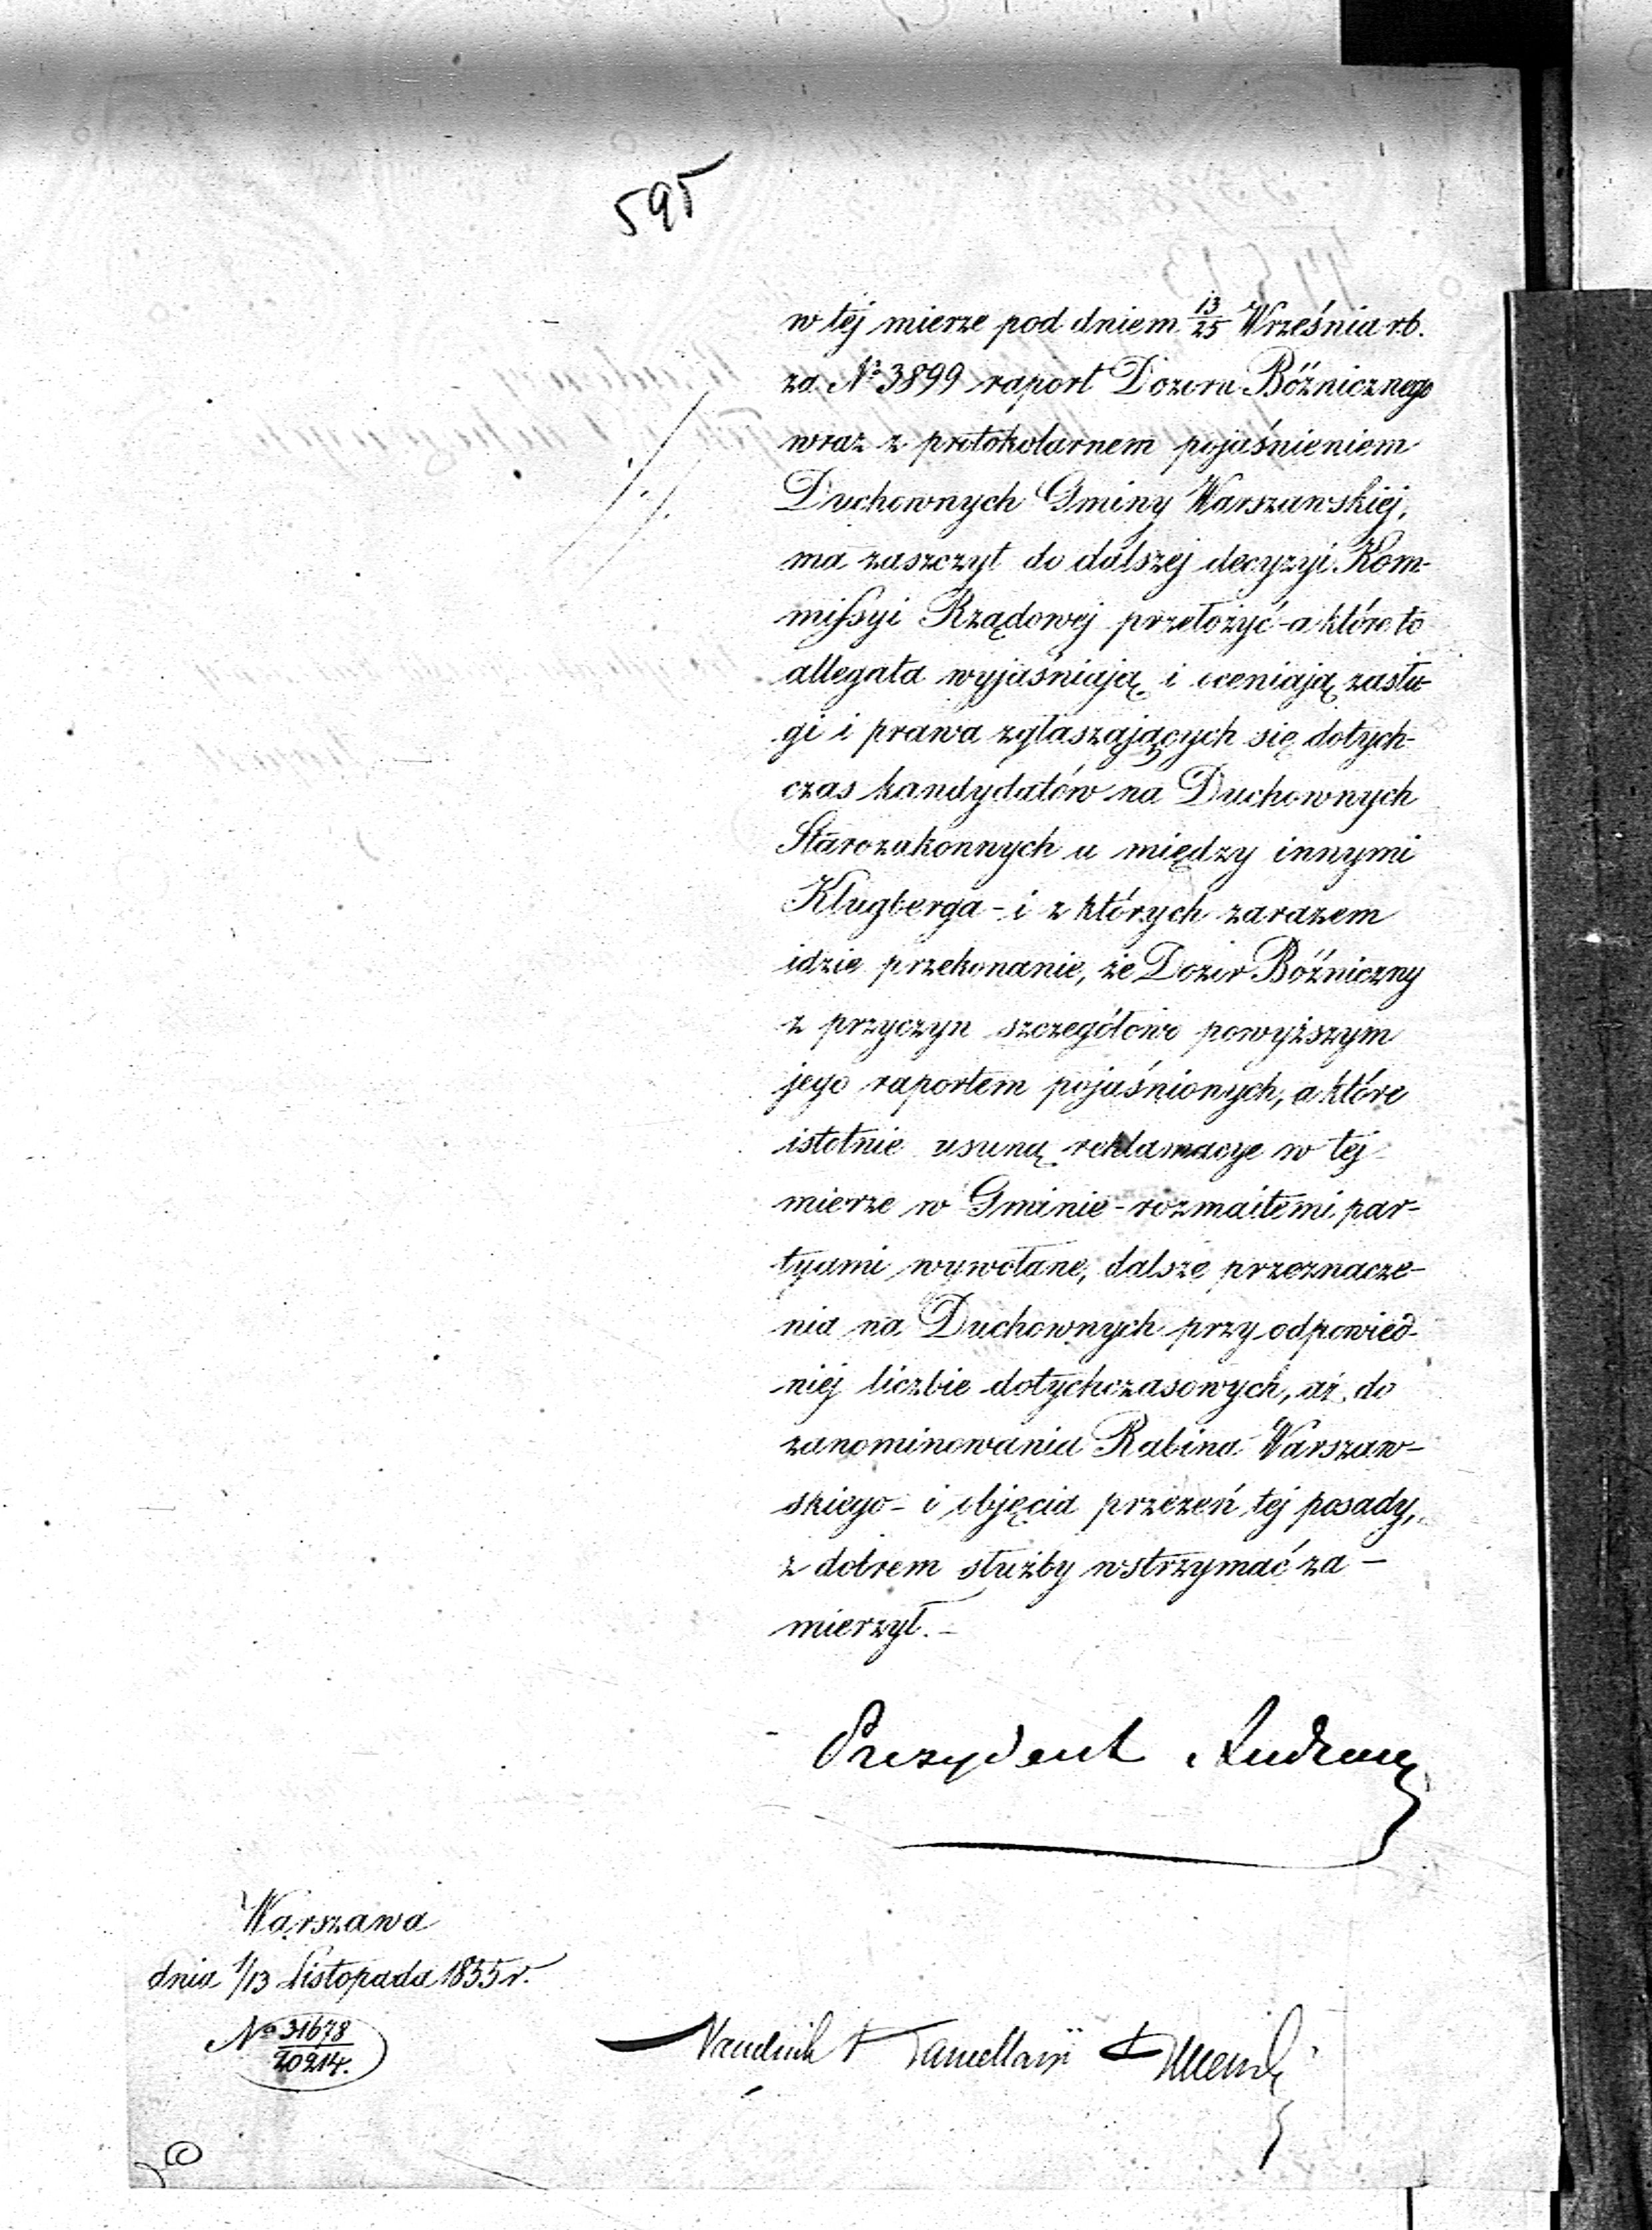 595
w tej mierze pod dniem 13/25 Września r.b.
za № 3899 raport Dozoru Bóżnicznego
wraz z protokolarnem pojaśnieniem
Duchownych Gminy Warszawskiéj,
ma zaszczyt do dalszej decyzyi Kom-
missyi Rządowej przełożyć - a które to
allegata wyjaśniają i oceniają zasłu-
gi i prawa zgłaszających się dotych-
czas kandydatów na Duchownych
Starozakonnych a między innymi
Klugberga - i z których zarazem
idzie przekonanie, że Dozór Bóżniczny
z przyczyn szczegółowo powyższym
jego raportem pojaśnionych, a które
istotnie usuną reklamacye w tej
mierze w Gminie - rozmaitemi par-
tyami wywołane, dalsze przeznacze-
nia na Duchownych przy odpowied-
niéj liczbie dotychczasowych, aż do
zanominowania Rabina Warszaw-
skiego - i objęcia przezeń tej posady,
z dobrem służby wstrzymać za-
mierzył. -
Prezydent
Warszawa
dnia 1/13 Listopada 1855 r.
№ 31678/20214.